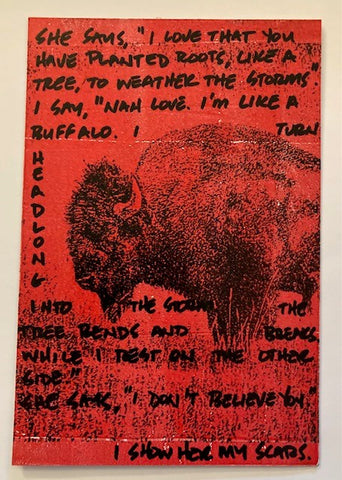 SHE SAYS, "I LOVE THAT YOU
HAVE PLANTED ROOTS, LIKE A
TREE, TO WEATHER THE STORMS."
I SAY, "NAH LOVE. I'M LIKE A
BUFFALO. I TURN
HEADLONG
INTO THE STORM. THE
TREE BENDS AND BREAKS
WHILE I REST ON THE OTHER
SIDE."
SHE SAYS, "I DON'T BELIEVE YOU"
I SHOW HER MY SCARS.